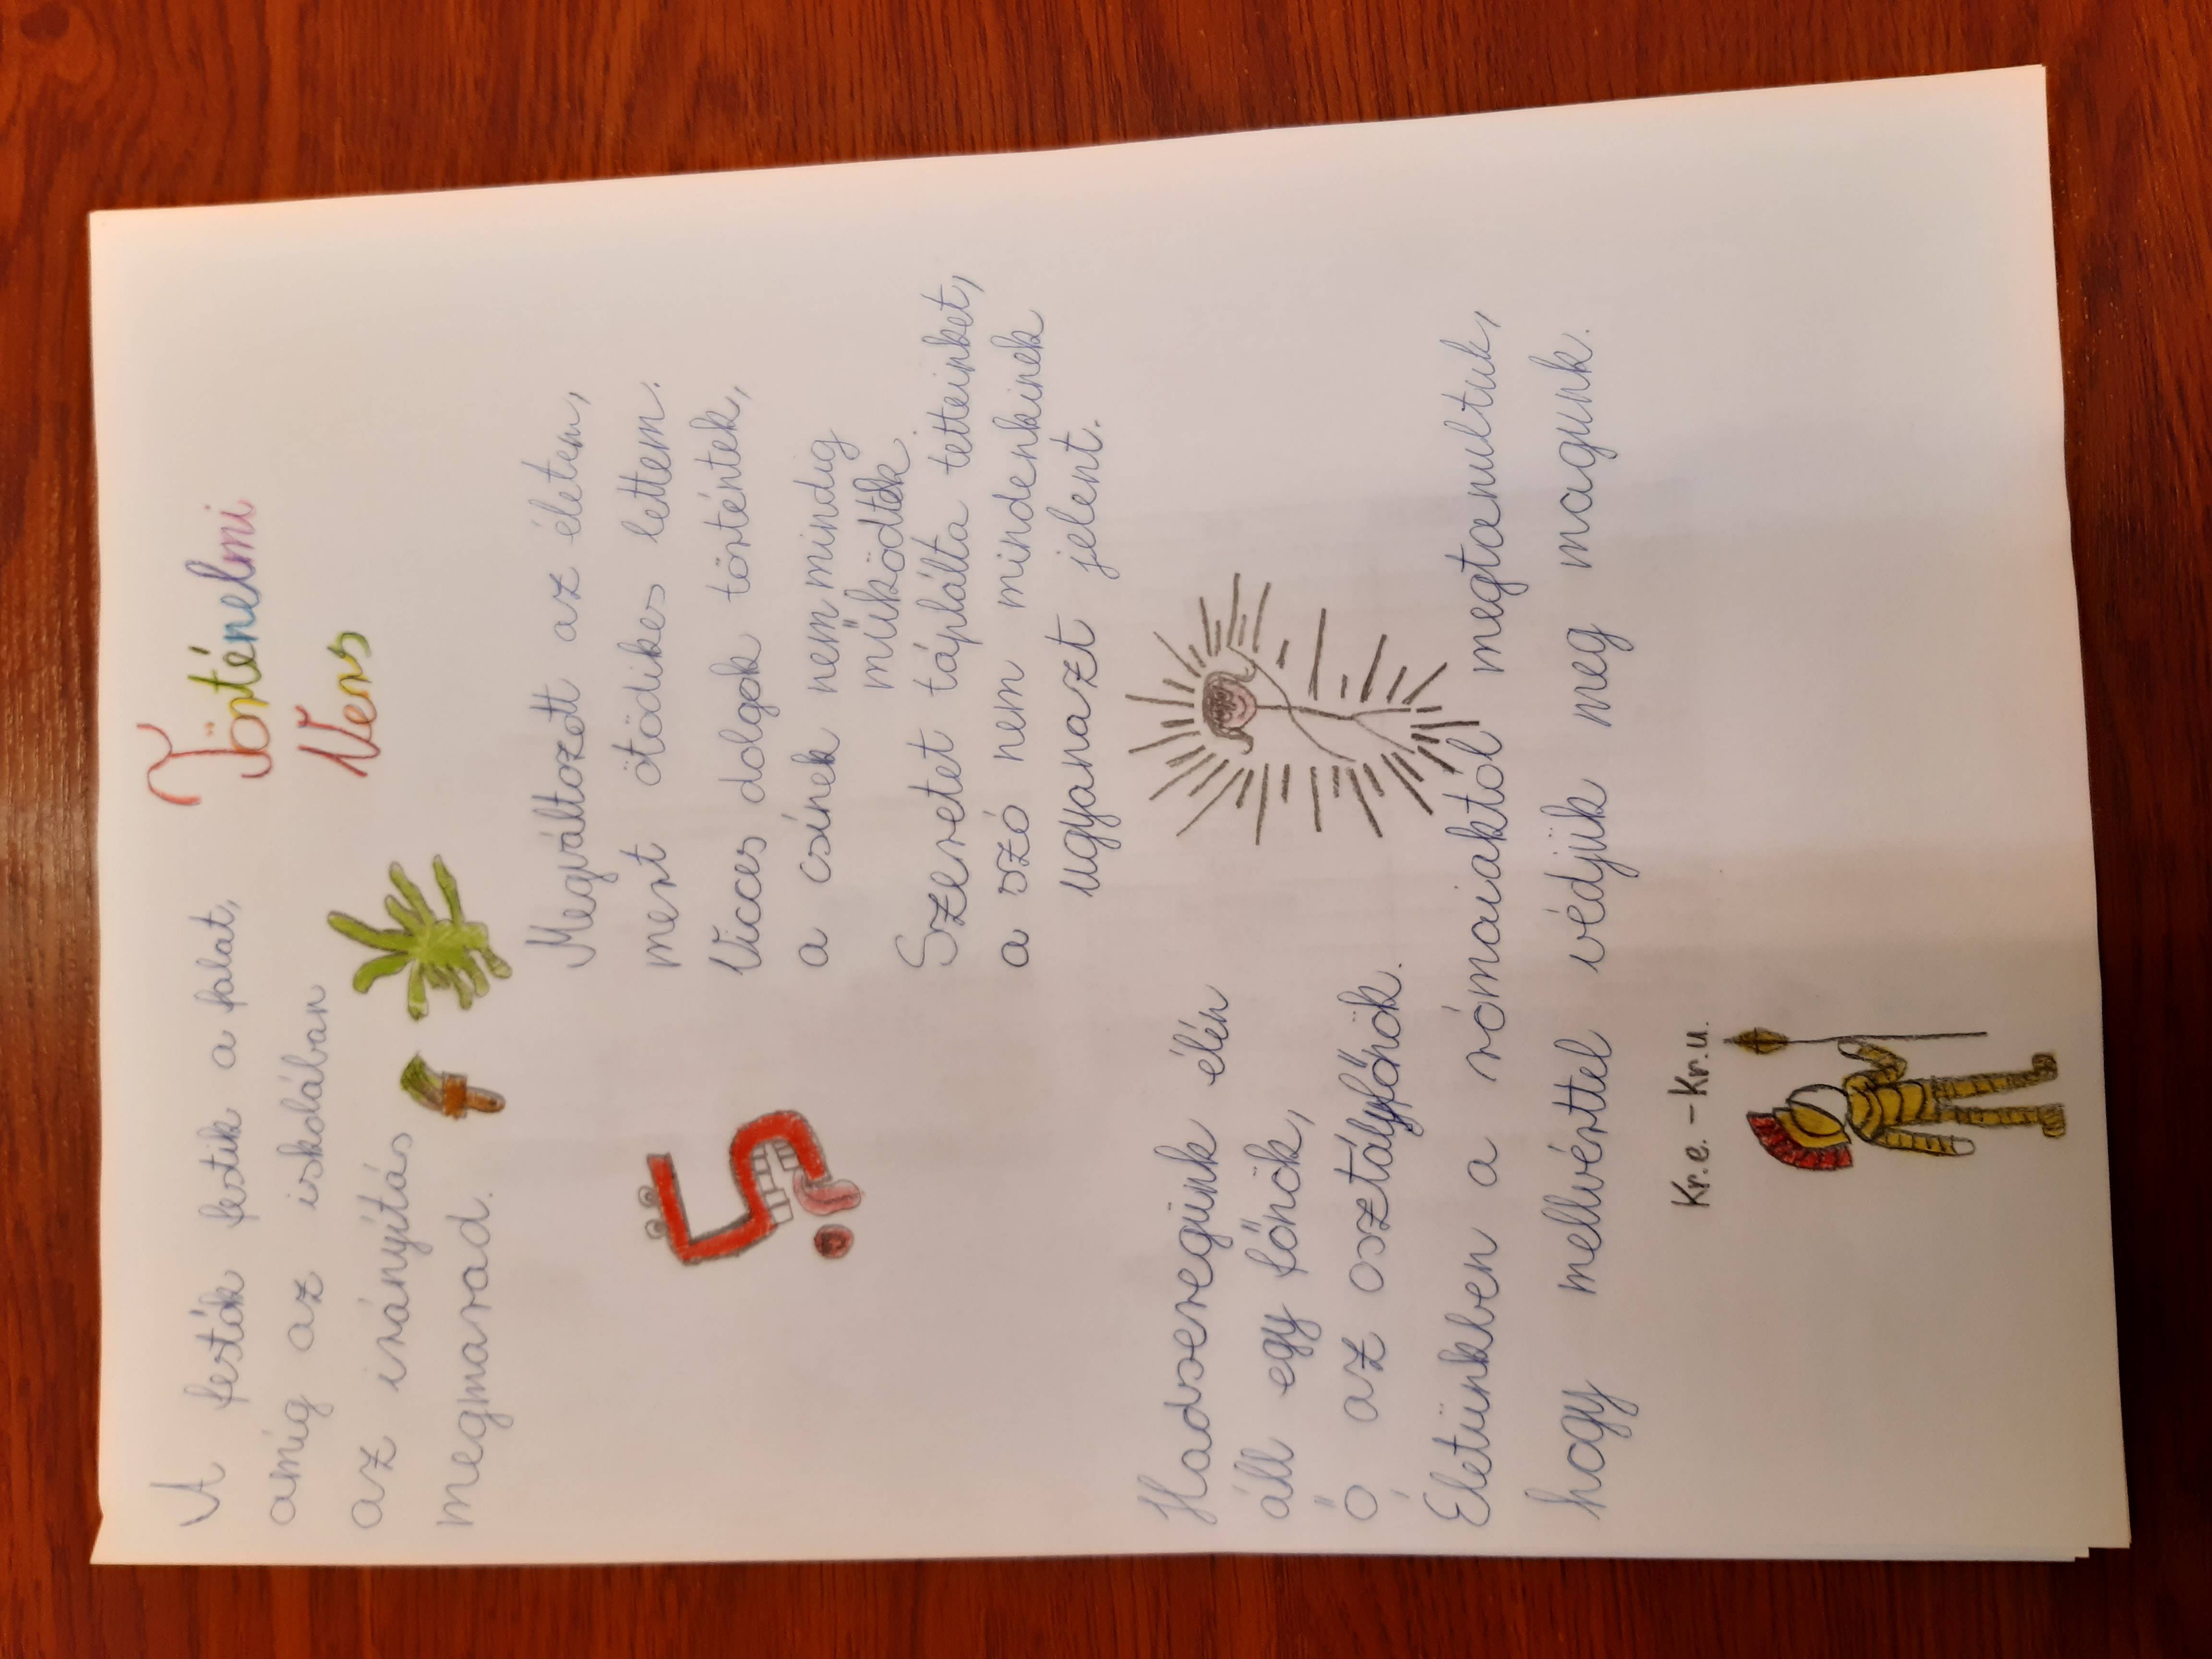 Történelmi
Vers
A festők festik a falat,
amíg az iskolában
az irányítás
megmarad.
Megváltozott az életem,
mert ötödikes lettem.
Vicces dolgok történtek,
a csínek nem mindig
működtek.
Szeretet táplálta tetteinket,
a szó nem mindenkinek
ugyanazt jelent.
Hadseregünk élén
áll egy főnök,
ő az osztályfőnök.
Életünkben a rómaiaktól megtanultuk,
hogy mellvérttel védjük meg magunk.
Kr.e. - Kr.u.